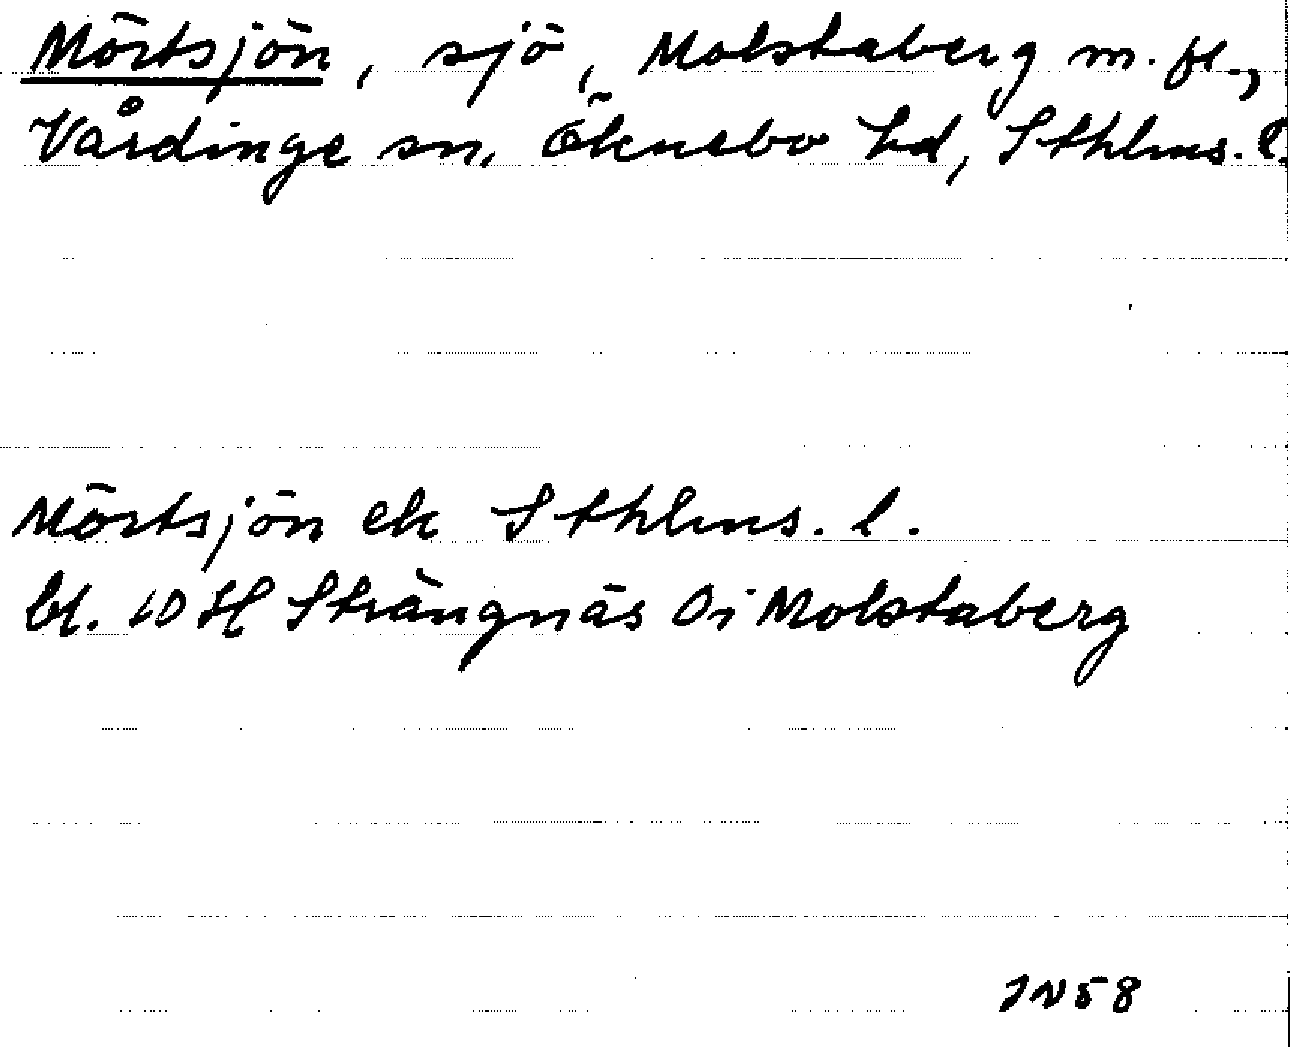 Mörtsjön, sjö, Molstaberg m. fl.,
Vårdinge sn, Öknebo hd, Sthlms. l.
Mörtsjön ek Sthlms. l.
bl. 10 H Strängnäs Oi Molstaberg
JN 58